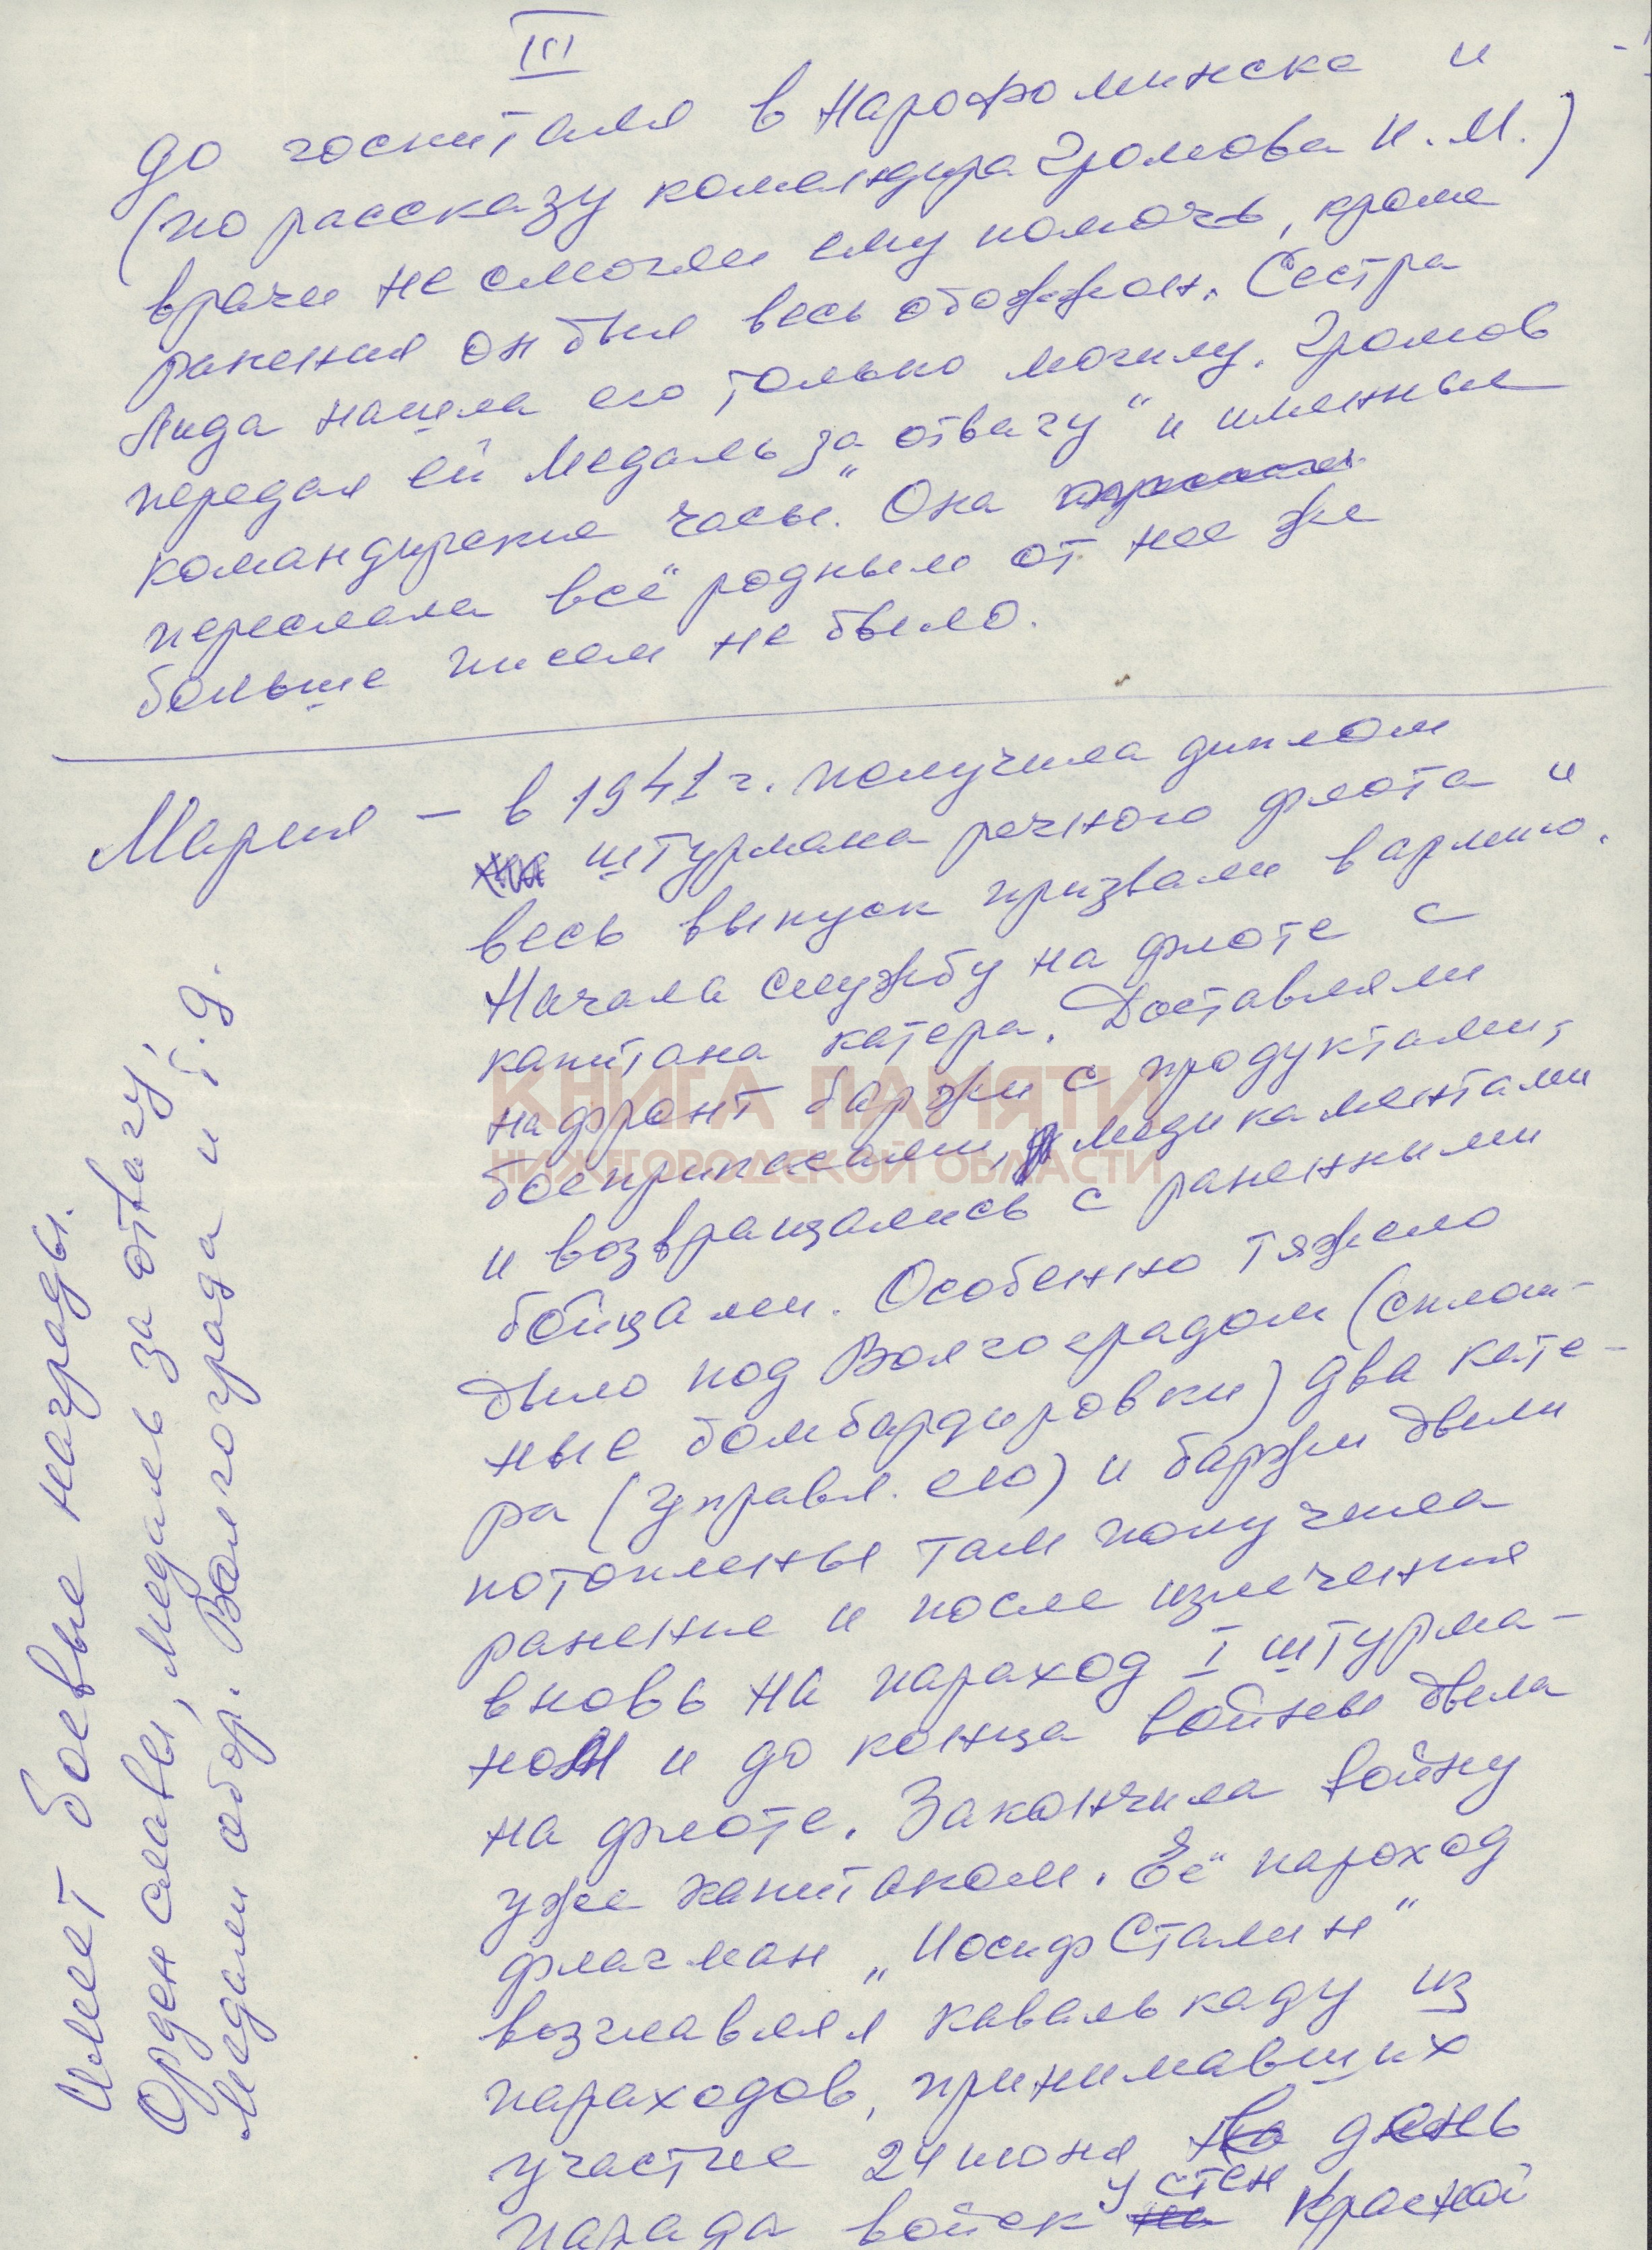 III
до госпиталя в Нарофоминске и
(по рассказу командира Громова И.М.)
врачи не смогли ему помочь, кроме
ранения он был весь обожжен. Сестра
Лида нашла его только могилу. Громов
передал ей Медаль „за отвагу" и именные
командирские часы. Она
переслала всё родным от нее же
больше писем не было.
Мария – в 1941 г. получила диплом
штурмана речного флота и
весь выпуск призвали в армию.
Начала службу на флоте с
капитана катера. Доставляли
на фронт баржи с продуктами,
боеприпасами, медикаментами
и возвращались с ранеными
бойцами. Особенно тяжело
было под Волгоградом (сплош-
ные бомбардировки) два кате-
ра (управл. ею) и баржи были
потоплены там получила
ранение и после излечения
вновь на пароход I штурма-
ном и до конца войны была
на флоте. Закончила войну
уже капитаном. Её пароход
флагман „Иосиф Сталин"
возглавлял кавалькаду из
пароходов, принимавших
участие 24 июня день
парада войск у стен Красной
Имеет боевые награды.
Орден славы, медаль за отвагу,
Медали обор. Волгограда и т.д.
КНИГА ПАМЯТИ
НИЖЕГОРОДСКОЙ ОБЛАСТИ